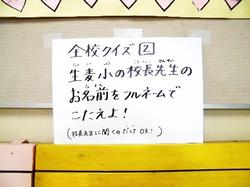 全校クイズ 2
生麦小の校長先生の
お名前をフルネームで
こたえよ!
(校長先生に聞くのだけOK!)